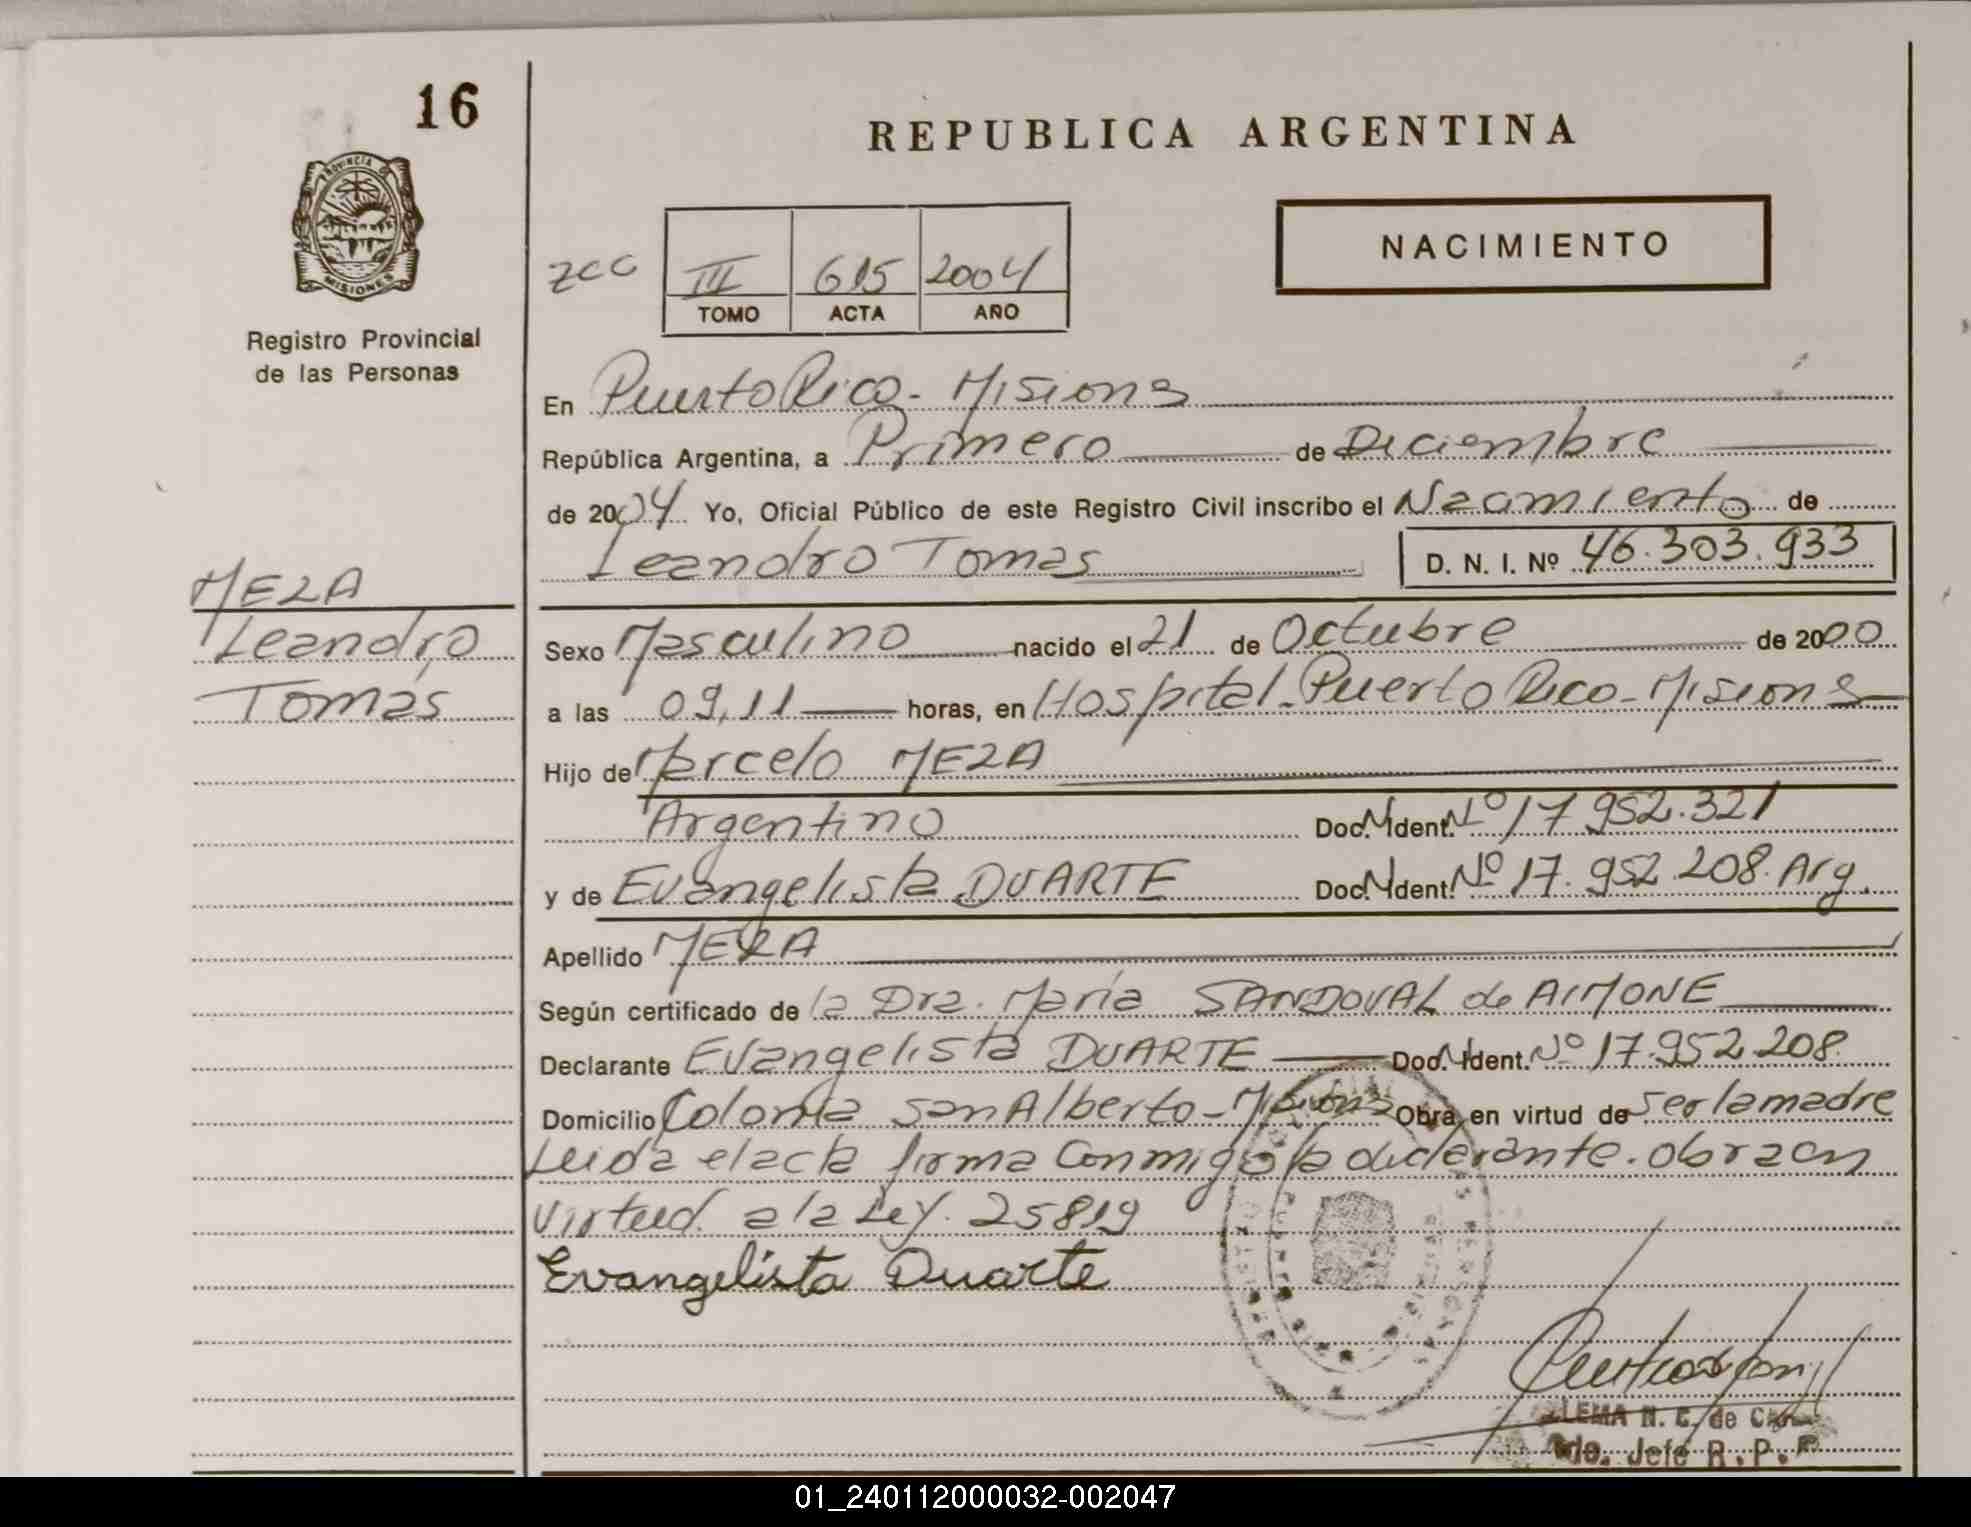 16
REPUBLICA ARGENTINA
PROVINCIA DE
MISIONES
Registro Provincial
de las Personas
NACIMIENTO
zcc III 615 2004
TOMO ACTA AÑO
En Puerto Rico - Misiones
República Argentina, a Primero de Diciembre
de 2004 Yo, Oficial Público de este Registro Civil inscribo el Nacimiento de
Leandro Tomas D. N. I. Nº 46.303.933
MEZA
Leandro
Tomás
Sexo Masculino nacido el 21 de Octubre de 2000
a las 09,11 horas, en Hospital - Puerto Rico - Misiones
Hijo de Marcelo MEZA
Argentino Doc. Ident. Nº 17 952.321
y de Evangelista DUARTE Doc. Ident. Nº 17. 952 208. Arg.
Apellido MEZA
Según certificado de la Dra. María SANDOVAL de AIMONE
Declarante Evangelista DUARTE Doc. Ident. Nº 17.952 208.
Domicilio Colonia San Alberto - Misiones Obra en virtud de ser la madre
Leida el acta firma conmigo la declarante. obra en
virtud a la Ley. 25819
Evangelista Duarte
LEMA N. C. de
Jefe R. P. P
01_240112000032-002047